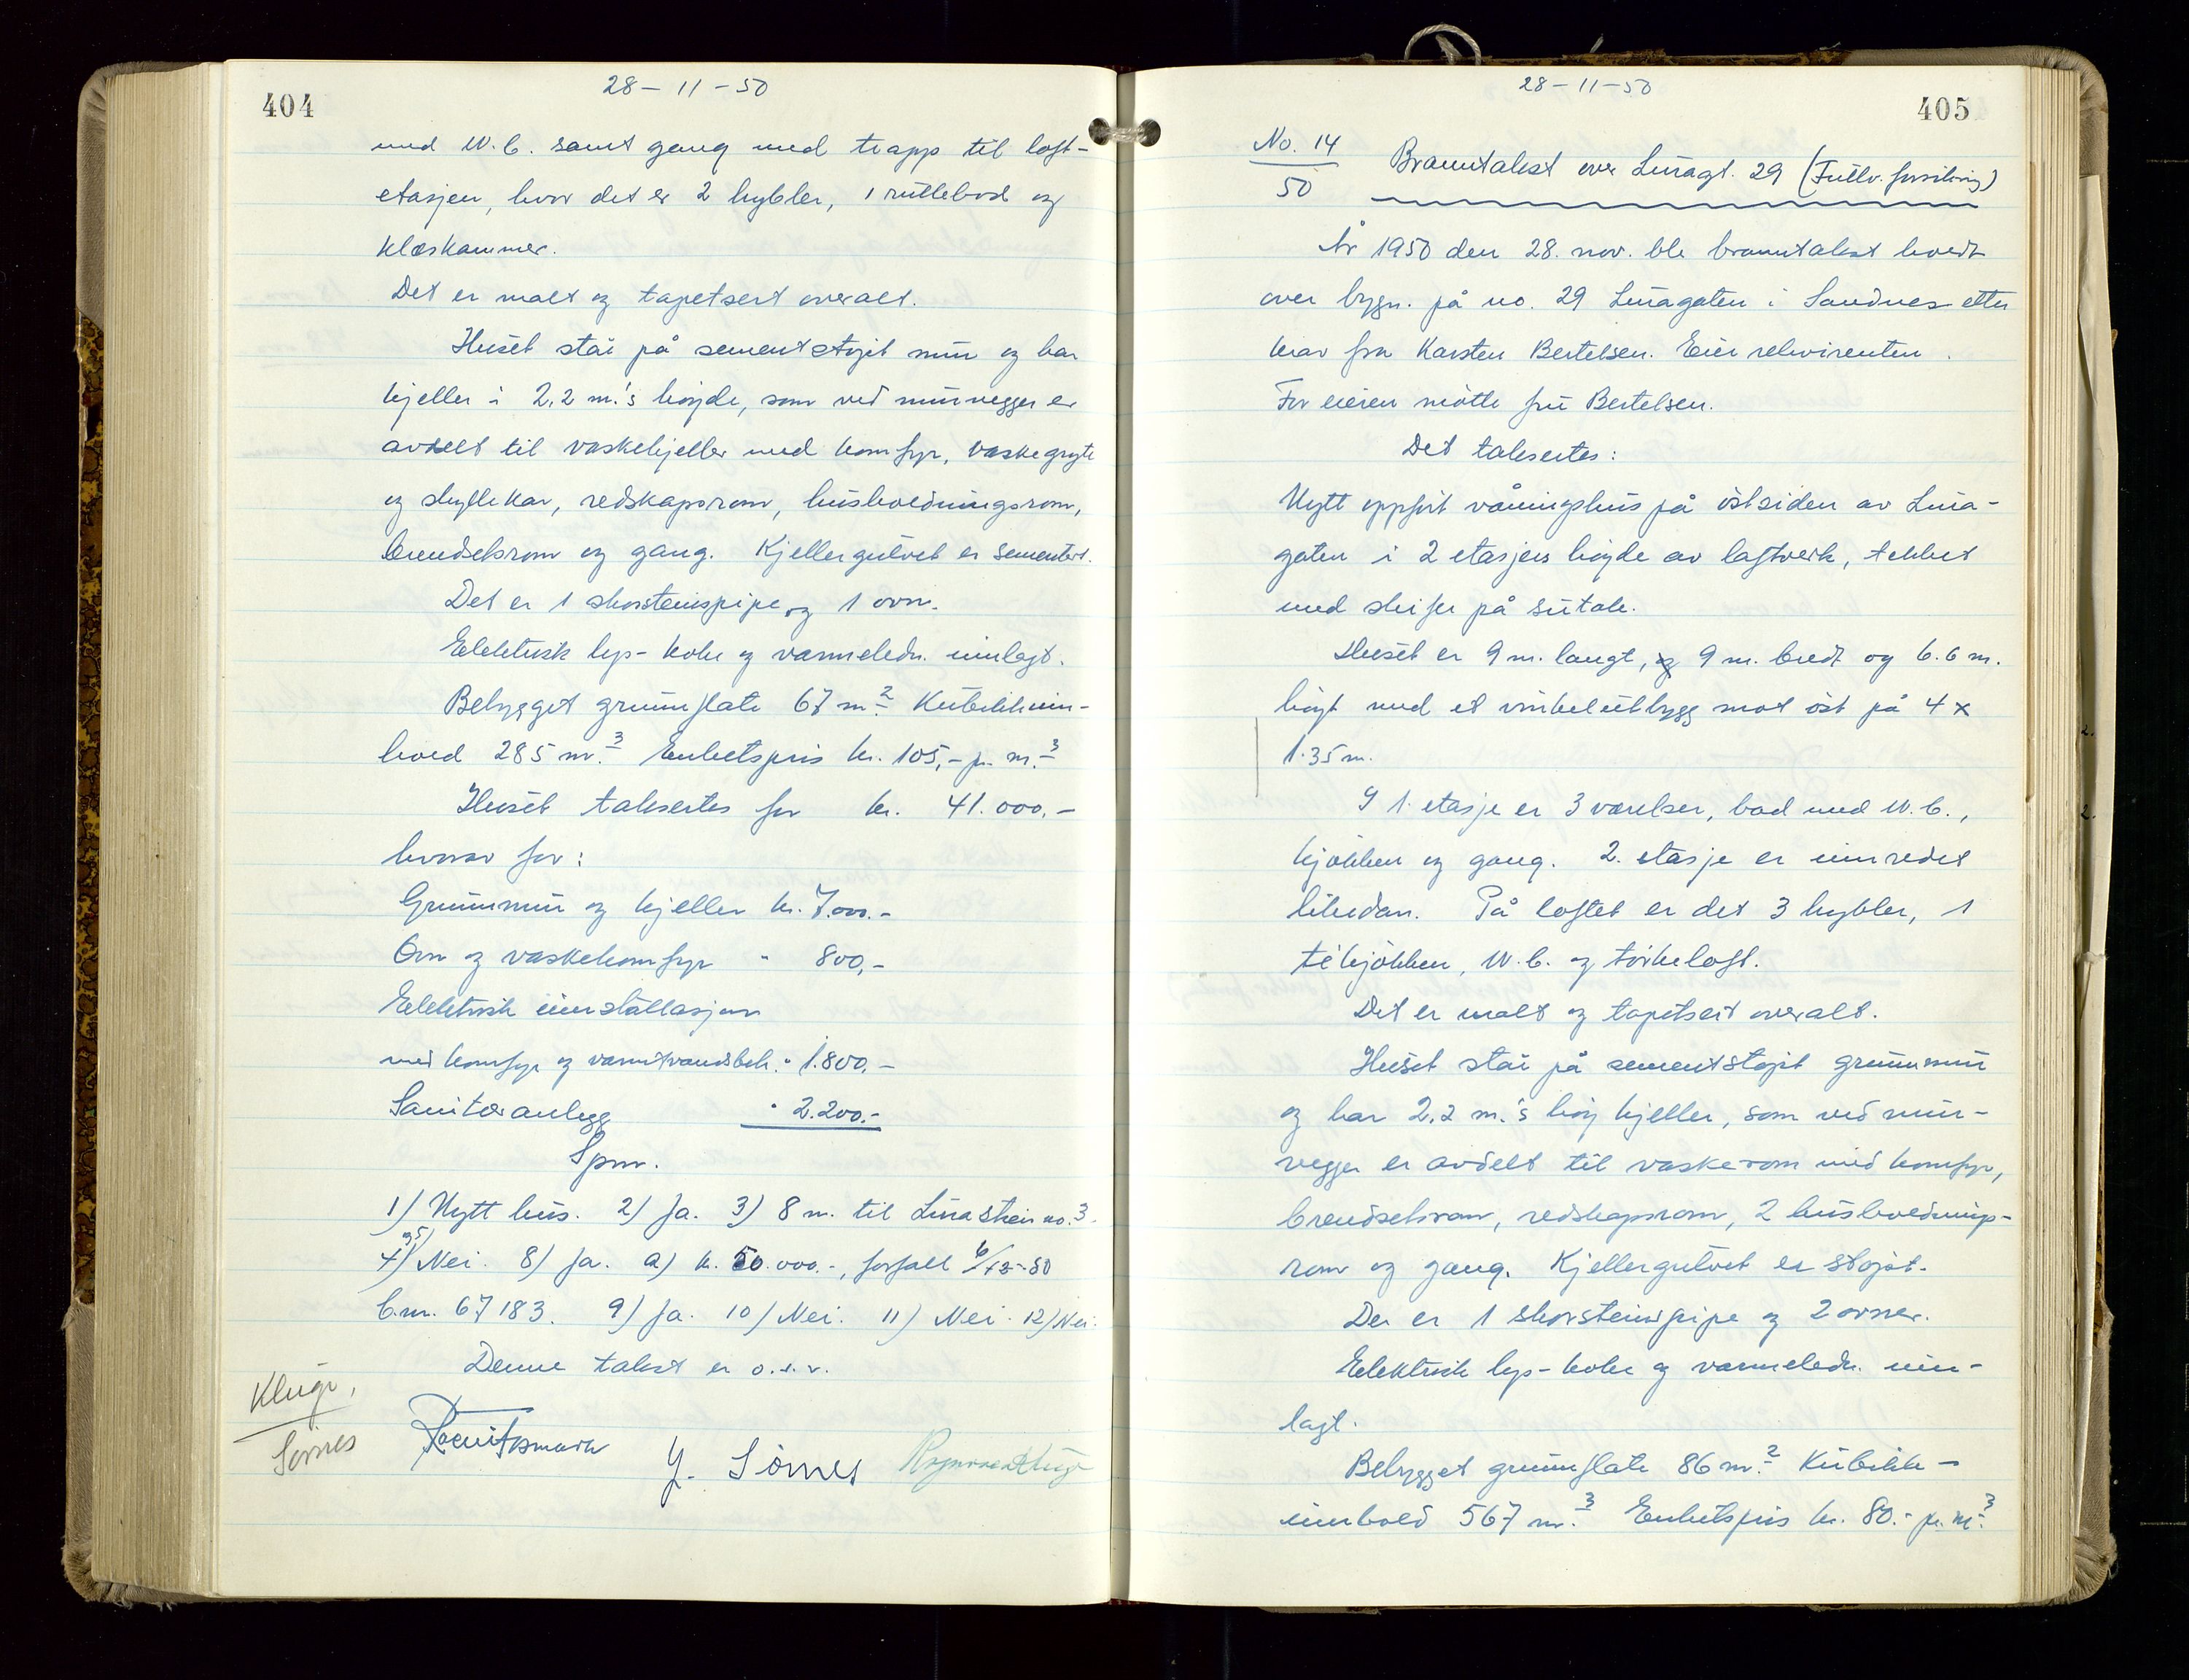 404
28-11-50
med W.C. samt gang med trapp til loft-
etasjen, hvor det er 2 hybler, 1 rullebod og
klæskammer.
Det er malt og tapetsert overalt.
Huset står på sementstøpt mur og har
kjeller i 2,2 m.'s høyde, som ved murvegger er
avdelt til vaskekjeller med komfyr, vaskegryte
og skyllekar, redskapsrom, husholdningsrom,
brendselsrom og gang. Kjellergulvet er sementert.
Det er 1 skorsteinspipe og 1 ovn.
Elektrisk lys- koke og varmeledn. innlagt.
Bebygget grunnflate 67 m.² Kubikkinn-
hold 285 m.³ Enhetspris kr. 105,- p. m.³
Huset takseres for kr. 41.000,-
hvorav for:
Grunnmur og kjeller kr. 7.000.-
Ovn og vaskekomfyr " 800,-
Elektrisk innstallasjon
med komfyr og varmtvandsbeh. " 1.800,-
Sanitæranlegg " 2.200.-
Spm.
1) Nytt hus. 2) Ja. 3) 8 m. til Lura no. 3.
4) 5) Nei. 8) Ja. a) kr. 50.000.-, forfall 6/12-50
b.nr. 67183. 9) Ja. 10) Nei. 11) Nei. 12) Nei.
Denne takst er o.s.v.
Kluge,
Sörnes
Y. Sörnes
405
28-11-50
No. 14
50
Branntakst over Luragt. 29 (Fullv. forsikring)
År 1950 den 28. nov. ble branntakst holdt
over bygn. på no. 29 Luragaten i Sandnes etter
krav fra Karsten Bertelsen. Eier rekvirenten.
For eieren møtte fru Bertelsen.
Det takseres:
Nytt oppført våningshus på östsiden av Lura-
gaten i 2 etasjers høyde av laftverk, tekket
med skifer på sutak.
Huset er 9 m. langt, 9 m. bredt og 6.6 m.
høyt med et vinkelutbygg mot öst på 4 x
1.35 m.
I 1. etasje er 3 værelser, bad med W.C.,
kjøkken og gang. 2. etasje er innredet
likedan. På loftet er det 3 hybler, 1
tékjøkken, W.C. og tørkeloft.
Det er malt og tapetsert overalt.
Huset står på sementstøpt grunnmur
og har 2,2 m.'s høy kjeller, som ved mur-
vegger er avdelt til vaskerom med komfyr,
brendselsrom, redskapsrom, 2 husholdnings-
rom og gang. Kjellergulvet er støpt.
Der er 1 skorsteinspipe og 2 ovner.
Elektrisk lys- koke og varmeledn. inn-
lagt.
Bebygget grunnflate 86 m.² Kubikk-
innhold 567 m.³ Enhetspris kr. 80.- p. m.³